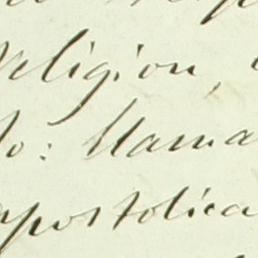 religion,
o: Llama
apostolica